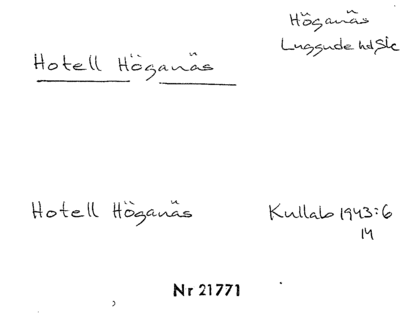 Höganäs
Luggude hd Sk
Hotell Höganäs
Hotell Höganäs
Kullab 1943:6
14
Nr 21771